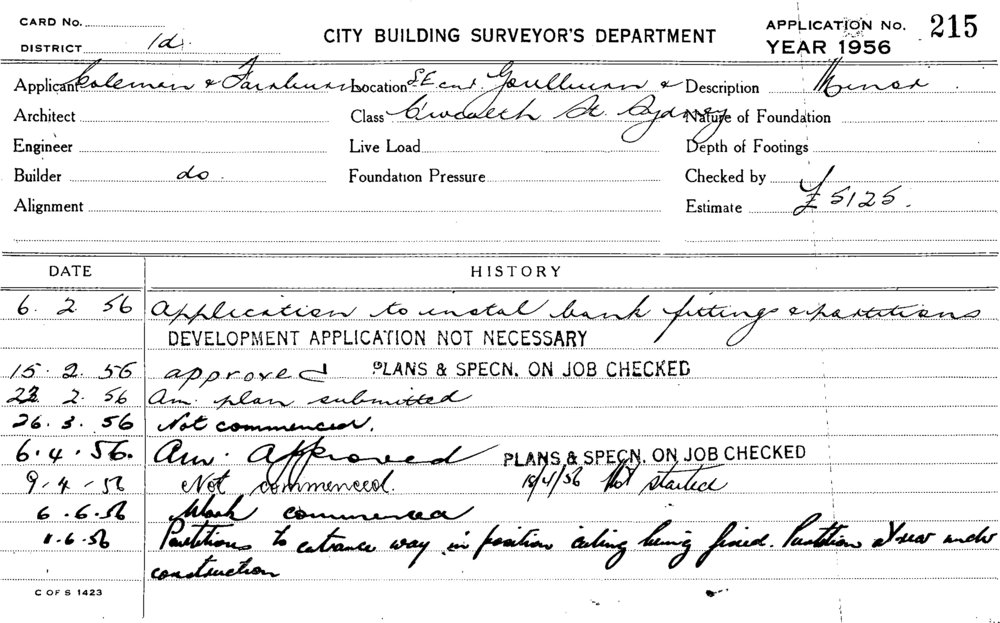 CARD No.
DISTRICT 1d.
CITY BUILDING SURVEYOR'S DEPARTMENT
APPLICATION No. 215
YEAR 1956
Applicant Coleman & Fairburn Location SE cnr. Goulburn & Description Minor.
Architect Class C'wealth St. Sydney Nature of Foundation
Engineer Live Load Depth of Footings
Builder do Foundation Pressure Checked by
Alignment Estimate £5125.
DATE HISTORY
6. 2. 56 Application to instal bank fittings & partitions
DEVELOPMENT APPLICATION NOT NECESSARY
15. 2. 56 approved PLANS & SPECN. ON JOB CHECKED
22 2. 56 Am. plan submitted
26. 3. 56 Not commenced.
6. 4. 56. Am. Approved PLANS & SPECN. ON JOB CHECKED
9-4-56 Not commenced. 18/4/56 Not started
6.6.56 Work commenced
11.6.56 Partitions to entrance way in position ceiling being fixed. Partition at rear under
construction
C OF S 1423